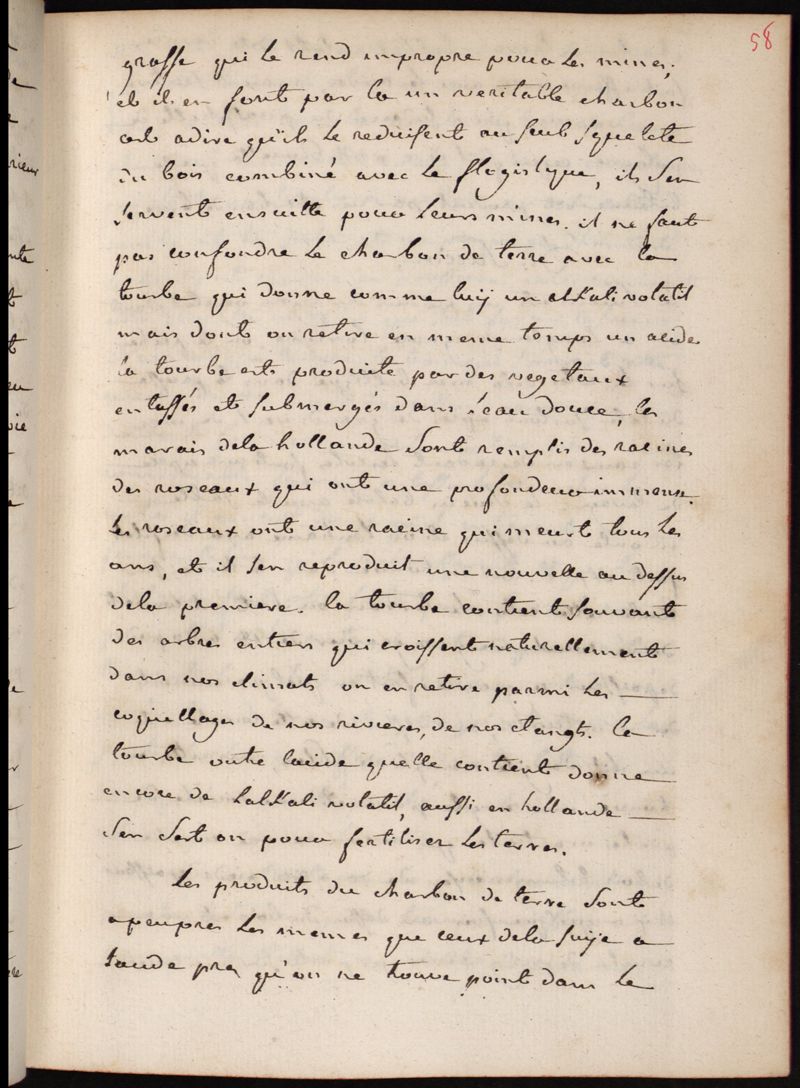 58
grasse qui le rend impropre pour les mines,
et ils en font par la un veritable charbon
cest adire qu'ils le reduisent au seul squelete
du bois combiné avec le flogistique, ils s'en
servent ensuitte pour leurs mines. il ne faut
pas confondre le charbon de terre avec la
tourbe qui donne comme luij un alkali volatil
mais dont on retire en meme temps un acide
la tourbe est produite par des vegetaux
entassés et submergés dans l'eau douce, les
marais dela hollande sont remplis des racines
des roseaux qui ont une profondeur immense.
les roseaux ont une racine qui meurt tous les
ans, et il s'en reproduit une nouvelle au dessus
dela premiere. la tourbe contient souvant
des arbres entiers qui croissent naturellement
dans nos climats on en retire parmi les
coquillages de nos rivieres, de nos etangts. la
tourbe outre lacide quelle contient donne
encore de lalkali volatil, aussi en hollande
sen sert on pour fertiliser les terres.
Les produits du charbon de terre sont
apeupres les memes que ceux dela suije a
lacide pres qu'on ne trouve point dans le